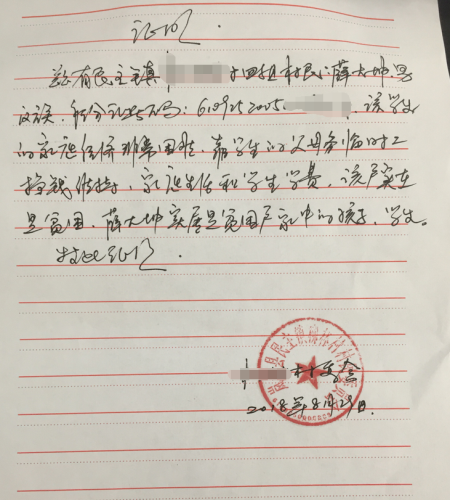 证明
兹有民主镇 十四组村民薛大坤男
汉族，身份证号码：6109252005 该学生
的家庭经济非常困难，靠学生的父母务临时工
挣钱维持，家庭生活和学生学费，该户实在
是贫困，薛大坤实属是贫困户家中的孩子，学生。
特此证明
村委会
2018年8月29日